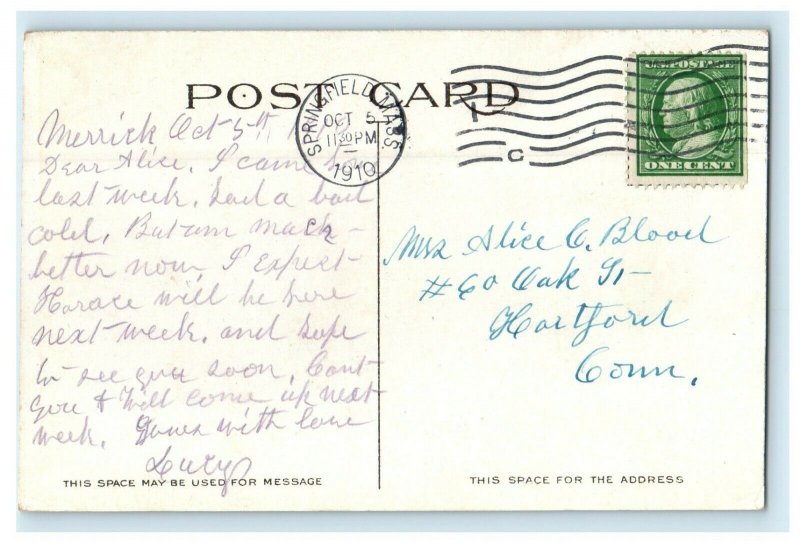 POST CARD
SPRINGFIELD, MASS
OCT 5
11 30 PM
1910
C
U.S. POSTAGE
ONE CENT
Merrick Oct 5th
Dear Alice, I came
last week, had a bad
cold, But am much
better now, I expect
Horace will be here
next week, and hope
to see you soon, Cant
you & Will come up next
week. Yours with love
Lucy
Mrs Alice C. Blood
#60 Oak St
Hartford
Conn.
THIS SPACE MAY BE USED FOR MESSAGE
THIS SPACE FOR THE ADDRESS